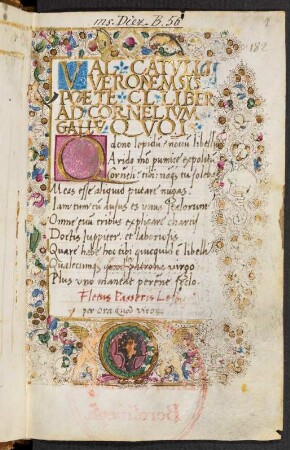 ms. Diez. B. 56
182
VAL. CATVLLI
VERONENSIS
POETE CL. LIBER
AD CORNELIVM
GALLV QVOI
dono lepidu nouu libellu
Arido mo pumice expolitu
Corneli tibi nanq tu solebas
Meas esse aliquid putare nugas
Iam tum cu ausus es unus Italorum
Omne euu tribus explicare chartis
Doctis Iuppiter et laboriosis
Quare habe hoc tibi quicquid e libelli
Qualecunq quod patrona uirgo
Plus uno maneat perene seclo
Fletus Passeris Les
per ora quod uirgo